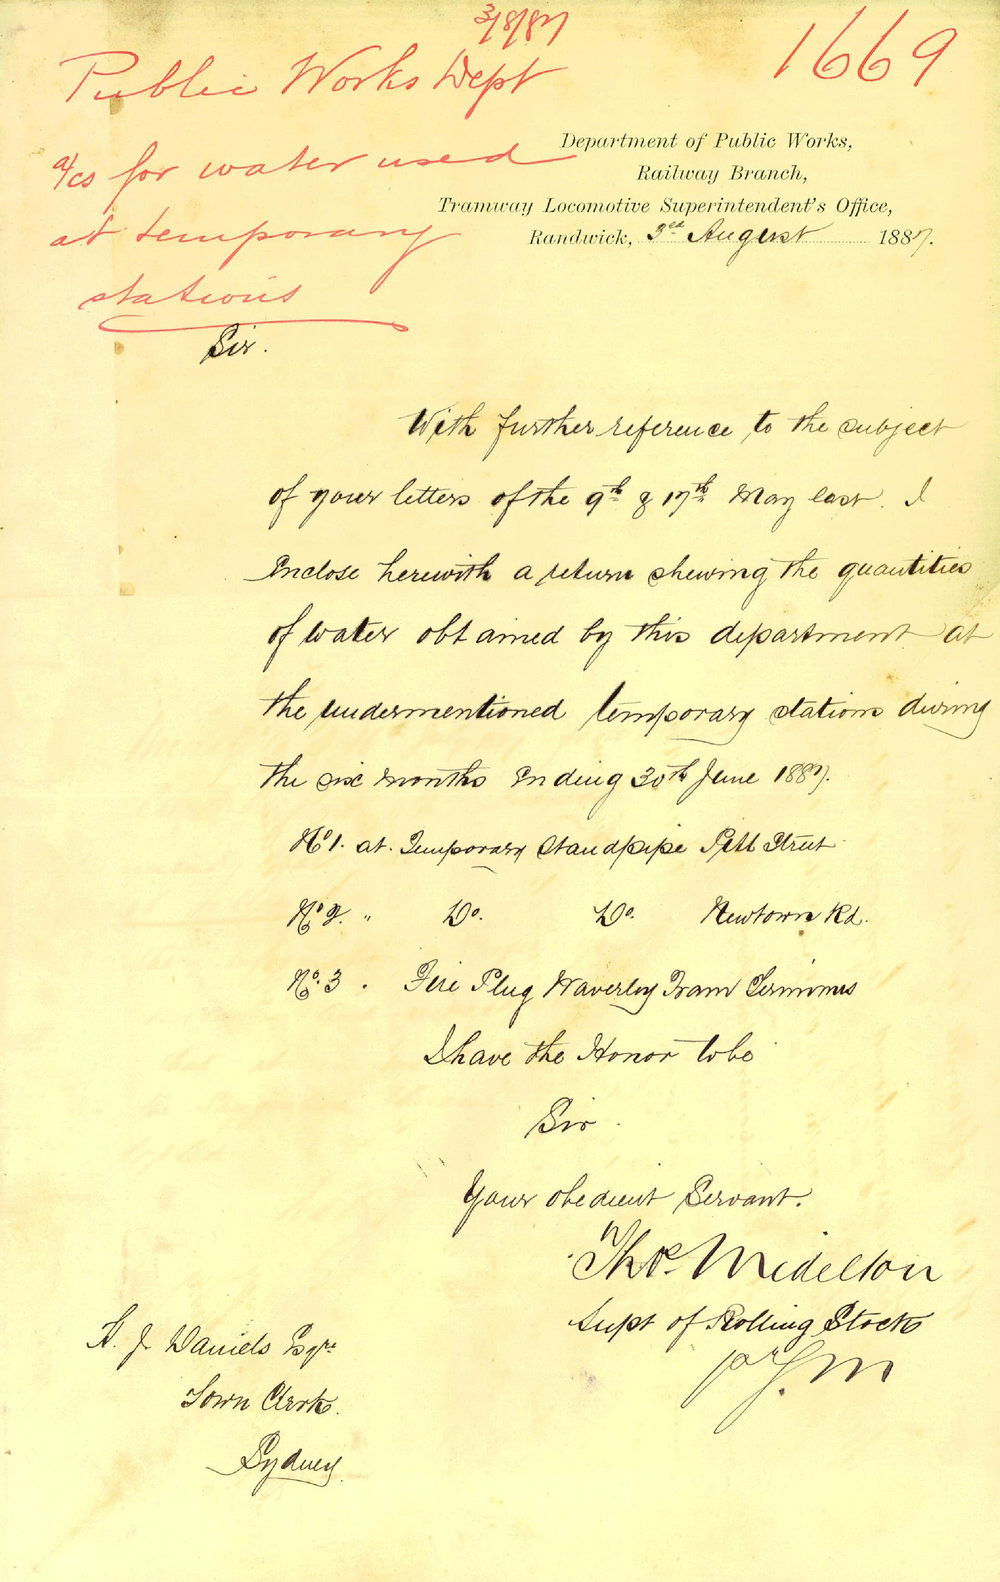 3/8/87
1669
Public Works Dept
a/cs for water used
at temporary
stations
Department of Public Works,
Railway Branch,
Tramway Locomotive Superintendent's Office,
Randwick, 3rd August 1887.
Sir.
With further reference to the subject
of your letters of the 9th & 17th May last. I
Enclose herewith a return shewing the quantities
of water obtained by this department at
the undermentioned temporary stations during
the six months Ending 30th June 1887.
No 1. at Temporary Standpipe Pitt Street
No 2. " Do. Do. Newtown Rd.
No. 3 . Fire Plug Waverley Tram Terminus
I have the Honor to be
Sir.
Your obedient Servant.
Thos. Midelton
Supt of Rolling Stock
pr J. M
H. J Daniels Esqre
Town Clerk.
Sydney